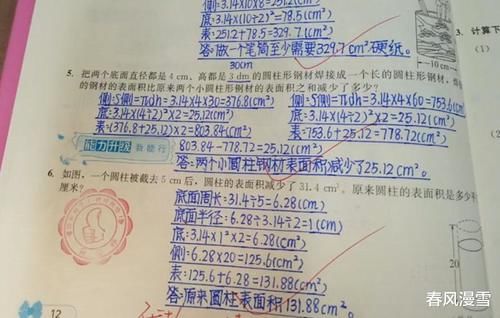 侧:3.14×10×8=251.2(cm²)
底:3.14×(10÷2)²=78.5(cm²)
表:251.2+78.5=329.7(cm²)
答:做一个笔筒至少需要329.7cm²硬纸。
30cm
3. 计算下
(1)
10 cm
5. 把两个底面直径都是 4 cm、高都是 3 dm 的圆柱形钢材焊接成一个长的圆柱形钢材,焊
的钢材的表面积比原来两个小圆柱形钢材的表面积之和减少了多少?
侧:S侧=πdh=3.14×4×30=376.8(cm²) 侧:S侧=πdh=3.14×4×60=753.6(cm²)
底:3.14×(4÷2)²×2=25.12(cm²) 底:3.14×(4÷2)²×2=25.12(cm²)
表:(376.8+25.12)×2=803.84(cm²) 表:753.6+25.12=778.72(cm²)
能力升级 我能行
803.84-778.72=25.12(cm²)
答:两个小圆柱钢材表面积减少了25.12cm²。
(2)
6. 如图,一个圆柱被截去 5 cm 后,圆柱的表面积减少了 31.4 cm²。原来圆柱的表面积是多少平
厘米?
底面周长:31.4÷5=6.28(cm)
底面半径:6.28÷3.14÷2=1(cm)
底:3.14×1²×2=6.28(cm²)
侧:6.28×20=125.6(cm²)
表:125.6+6.28=131.88(cm²)
答:原来圆柱表面积131.88cm²。
20
12
春风漫雪